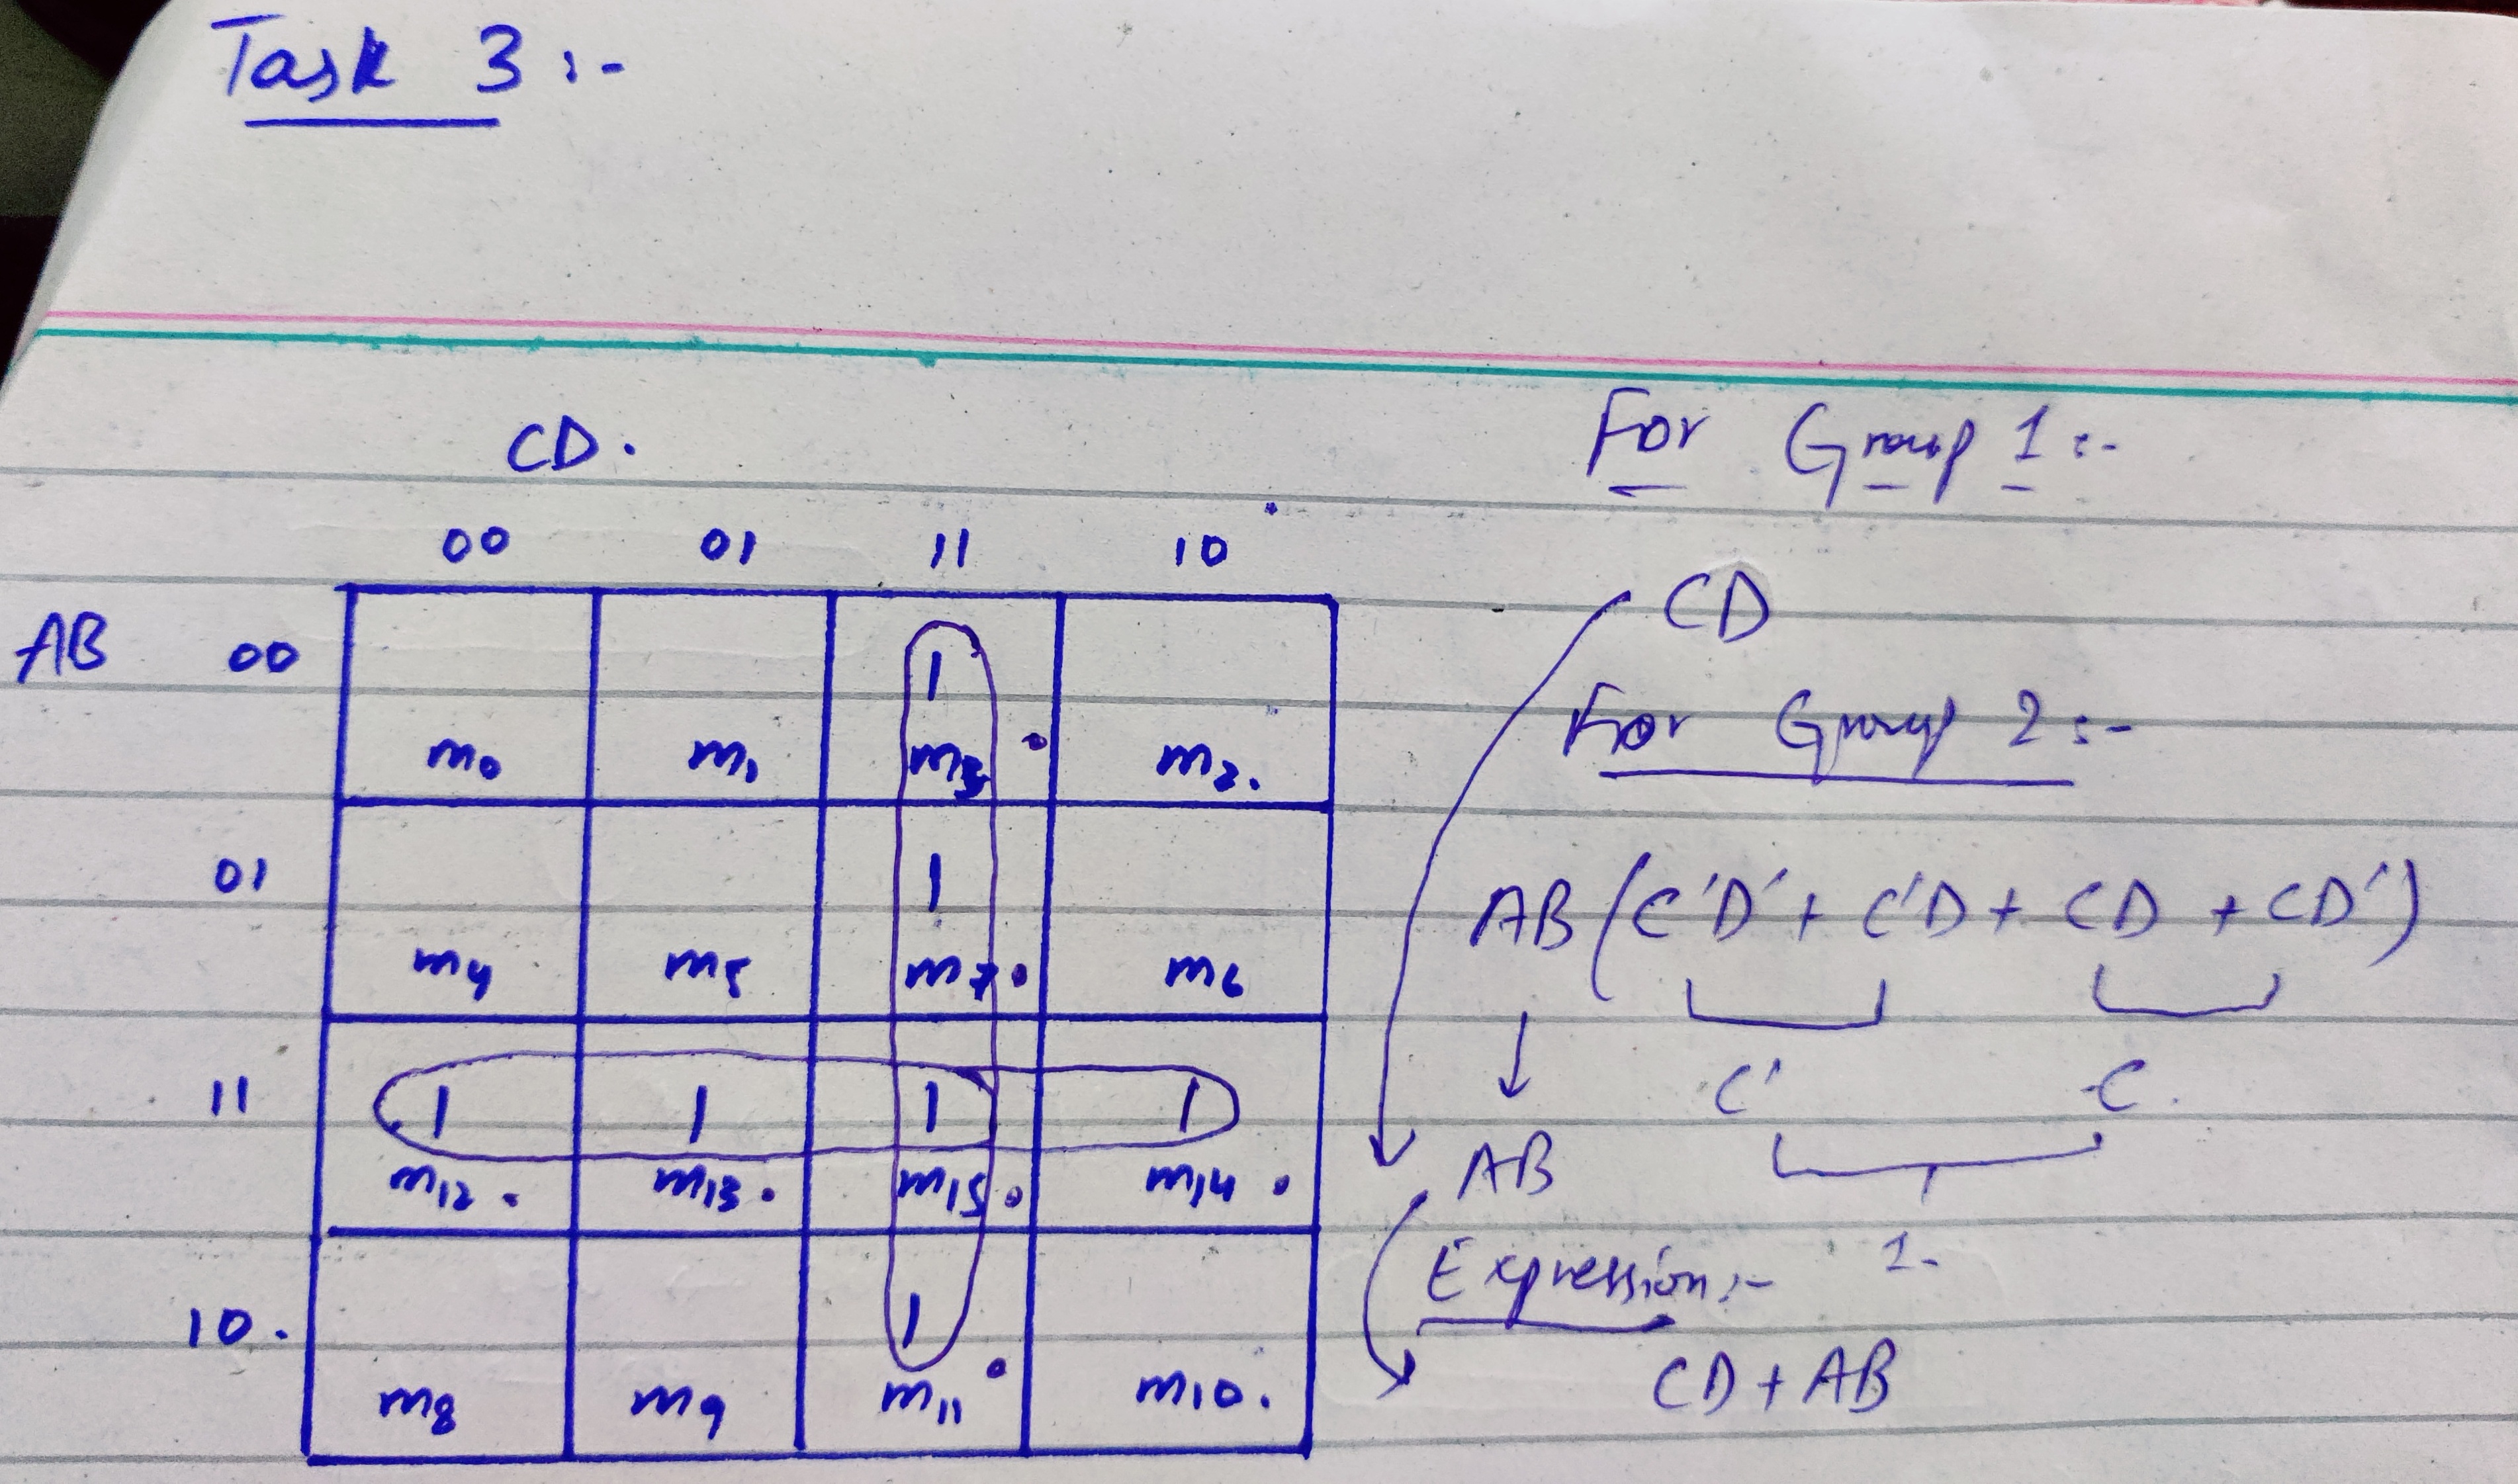 Task 3 :-
CD.
00 01 11 10
AB 00 1
m0 m1 m3 m2.
01 1
m4 m5 m7 m6
11 1 1 1 1
m12. m13. m15. m14.
10. 1
m8 m9 m11 m10.
For Group 1 :-
CD
For Group 2 :-
AB (C'D' + C'D + CD + CD')
C' C.
AB
1.
Expression :-
CD + AB